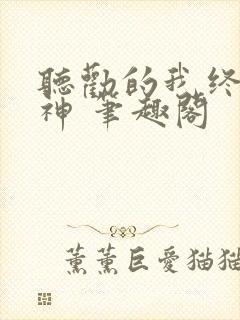 聽勸的我終
神 筆趣閣
薰薰巨愛猫猫